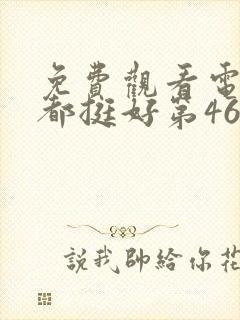 免費觀看電
都挺好第46
說我帥給你花